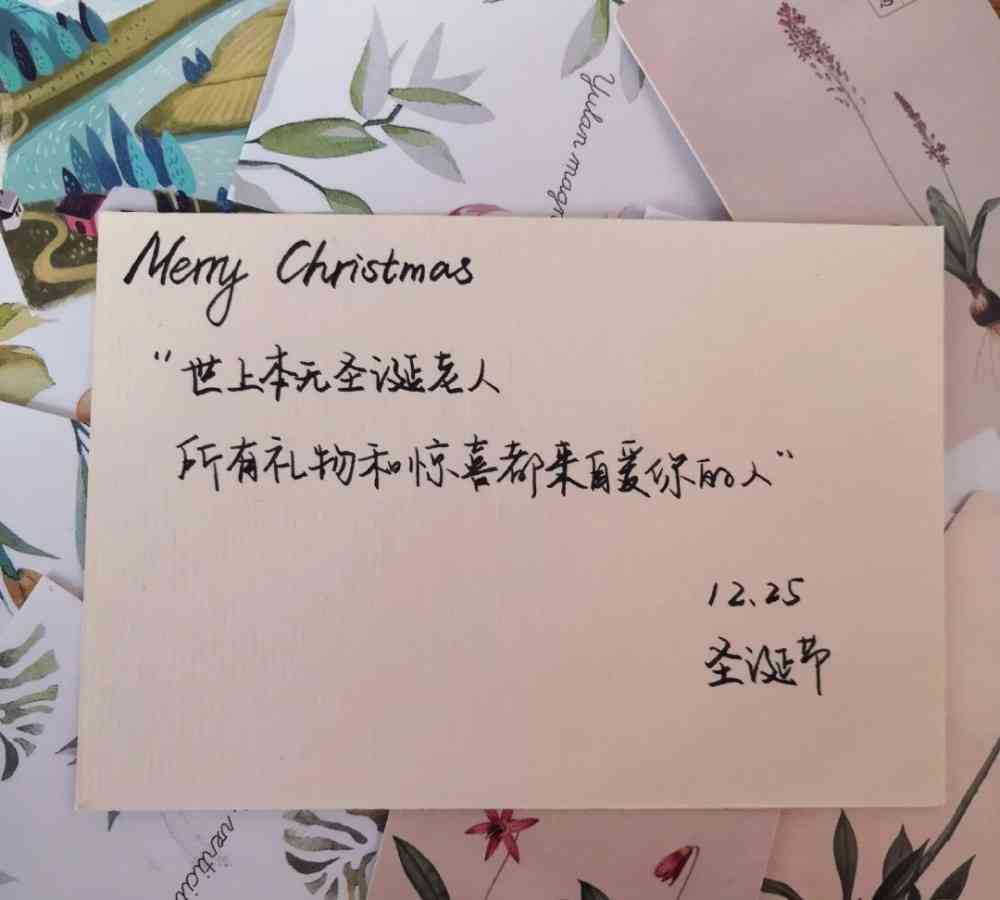 Yulan magn
Merry Christmas
“世上本无圣诞老人
所有礼物和惊喜都来自爱你的人”
12.25
圣诞节